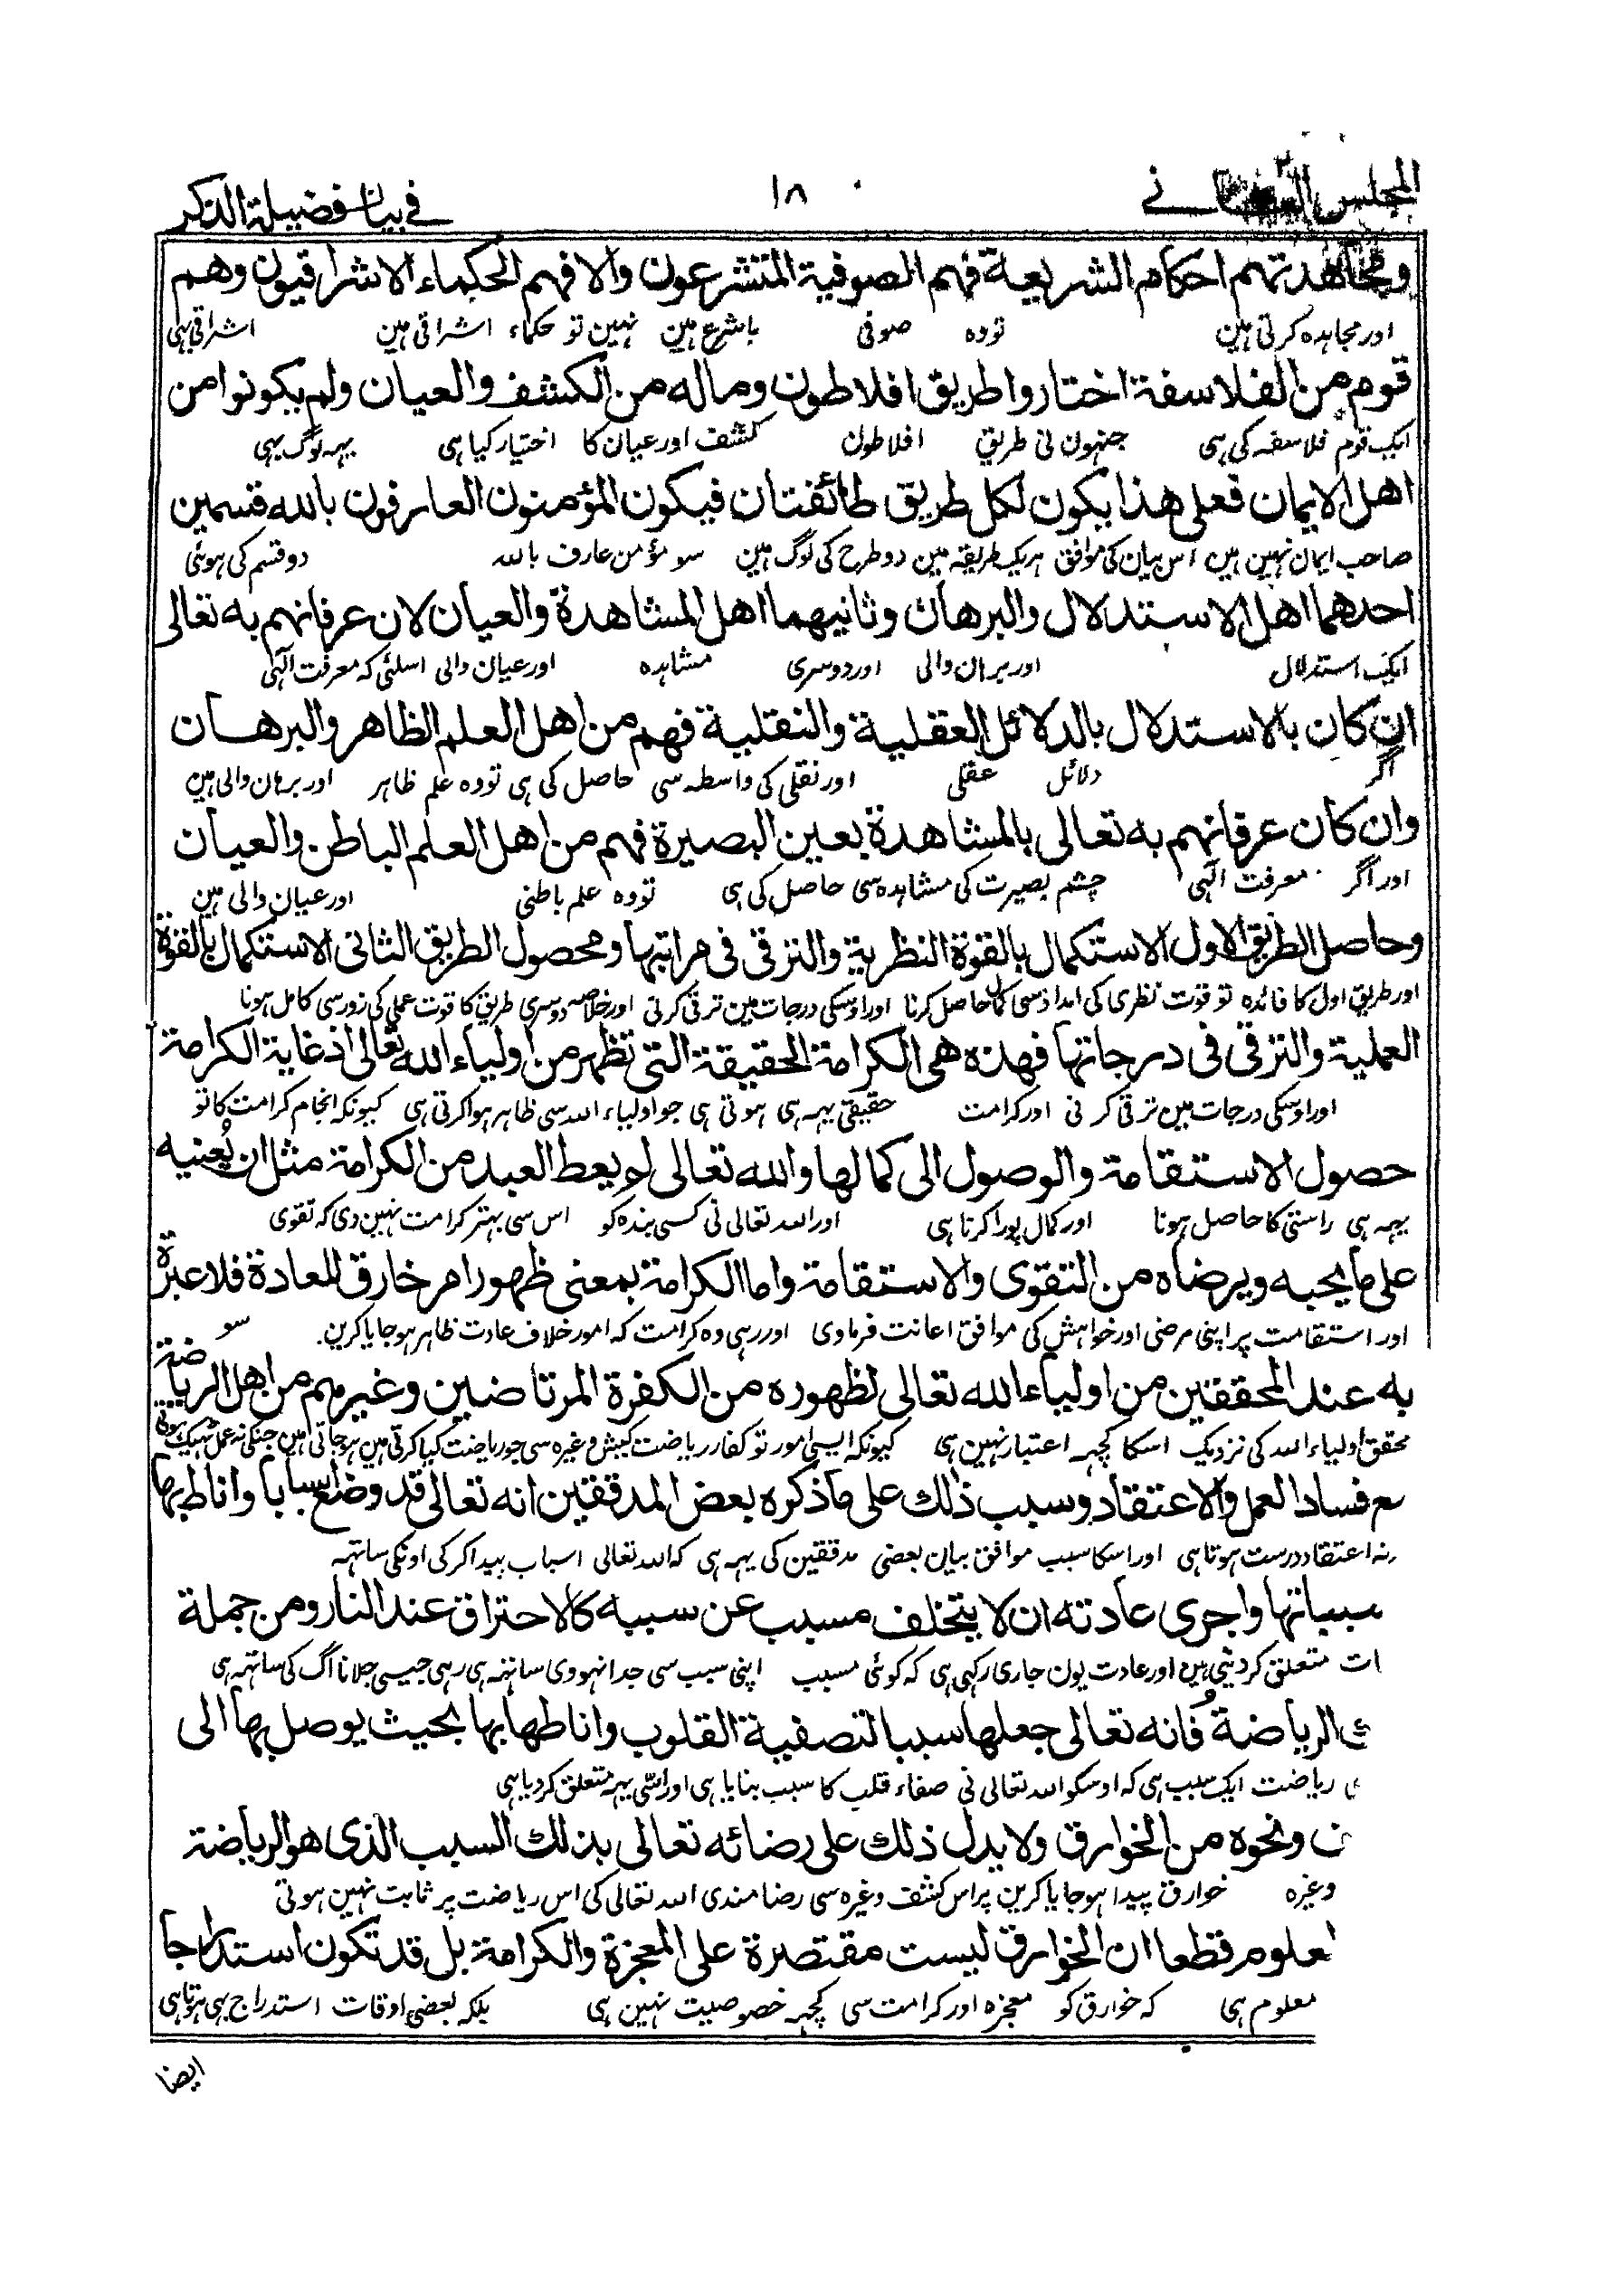 المجلس الثانی
۱۸
فی بیان فضیلة الذکر
ومجاهدتهم احکام الشریعة فهم الصوفیة المتشرعون والا فهم الحکماء الاشراقیون وهم
اور مجاہدہ کرتی ہین تو وہ صوفی باشرع ہین نہین تو حکماء اشراقی ہین اشراقی ہی
قوم من الفلاسفة اختاروا طریق افلاطون وماله من الکشف والعیان ولم یکونوا من
ایک قوم فلاسفہ کی ہی جنہون نی طریق افلاطون کشف اور عیان کا اختیار کیا ہی یہہ لوگ یہی
اهل الایمان فعلی هذا یکون لکل طریق طائفتان فیکون المؤمنون العارفون بالله قسمین
صاحب ایمان نہین ہین اس بیان کی موافق ہر یک طریقہ مین دو طرح کی لوگ ہین سو مؤمن عارف باللہ دو قسم کی ہوئی
احدهما اهل الاستدلال والبرهان وثانیهما اهل المشاهدة والعیان لان عرفانهم به تعالی
ایک استدلال اور برہان والی اور دوسری مشاہدہ اور عیان والی اسلئی کہ معرفت الہی
ان کان بالاستدلال بالدلائل العقلیة والنقلیة فهم من اهل العلم الظاهر والبرهان
اگر دلائل عقلی اور نقلی کی واسطہ سی حاصل کی ہی تو وہ علم ظاہر اور برہان والی ہین
وان کان عرفانهم به تعالی بالمشاهدة بعین البصیرة فهم من اهل العلم الباطن والعیان
اور اگر معرفت الہی چشم بصیرت کی مشاہدہ سی حاصل کی ہی تو وہ علم باطنی اور عیان والی ہین
وحاصل الطریق الاول الاستکمال بالقوة النظریة والترقی فی مراتبها ومحصول الطریق الثانی الاستکمال بالقوة
اور طریق اول کا فائدہ تو قوت نظری کی امداد سی کمال حاصل کرنا اور اوسکی درجات مین ترقی کرنی اور خلاصہ دوسری طریق کا قوت عملی کی زور سی کامل ہونا
العملیة والترقی فی درجاتها فهذه هی الکرامة الحقیقة التی تظهر من اولیاء الله تعالی اذ غایة الکرامة
اور اوسکی درجات مین ترقی کرنی اور کرامت حقیقی یہہ ہی ہوتی ہی جو اولیاء اللہ سی ظاہر ہوا کرتی ہی کیونکہ انجام کرامت کا تو
حصول الاستقامة والوصول الی کمالها والله تعالی لم یعط العبد من الکرامة مثل ان یُعینه
یہہ ہی راستی کا حاصل ہونا اور کمال پورا کرنا ہی اور اللہ تعالی نی کسی بندہ کو اس سی بہتر کرامت نہین دی کہ تقوی
علی ما یحبه ویرضاه من التقوی والاستقامة واما الکرامة بمعنی ظهور امر خارق للعادة فلا عبرة
اور استقامت پر اپنی مرضی اور خواہش کی موافق اعانت فرماوی اور رہی وہ کرامت کہ امور خلاف عادت ظاہر ہو جایا کرین. سو
به عند المحققین من اولیاء الله تعالی لظهوره من الکفرة المرتاضین وغیرهم من اهل الریاضة
محقق اولیاء اللہ کی نزدیک اسکا کچہہ اعتبار نہین ہی کیونکہ ایسی امور تو کفار ریاضت کیش وغیرہ سی جو ریاضت کیا کرتی ہین ہو جاتی ہین جنکی نہ عمل ٹہیک ہوتی
مع فساد العمل والاعتقاد وسبب ذلك علی ما ذکره بعض المدققین انه تعالی قد وضع اسبابا واناط بها
نہ اعتقاد درست ہوتا ہی اور اسکا سبب موافق بیان بعضی مدققین کی یہہ ہی کہ اللہ تعالی اسباب پیدا کر کی اونکی ساتہہ
سبباتها واجری عادته ان لا یتخلف مسبب عن سببه کالاحتراق عند النار ومن جملة
ات متعلق کردیئی ہین اور عادت یون جاری رکہی ہی کہ کوئی مسبب اپنی سبب سی جدا نہووی ساتہہ ہی رہی جیسی جلانا آگ کی ساتہہ ہی
الریاضة فانه تعالی جعلها سببا لتصفیة القلوب واناطها بها بحیث یوصل بها الی
ریاضت ایک سبب ہی کہ اوسکو اللہ تعالی نی صفاء قلب کا سبب بنایا ہی اور اتنی یہہ متعلق کر دیا ہی
ونحوه من الخوارق ولا یدل ذلك علی رضائه تعالی بذلك السبب الذی هو الریاضة
وغیرہ خوارق پیدا ہو جایا کرین پر اس کشف وغیرہ سی رضامندی اللہ تعالی کی اس ریاضت پر ثابت نہین ہوتی
معلوم قطعا ان الخوارق لیست مقتصرة علی المعجزة والکرامة بل قد تکون استدراجا
معلوم ہی کہ خوارق کو معجزہ اور کرامت سی کچہہ خصوصیت نہین ہی بلکہ بعضی اوقات استدراج بہی ہوتا ہی
ایضا